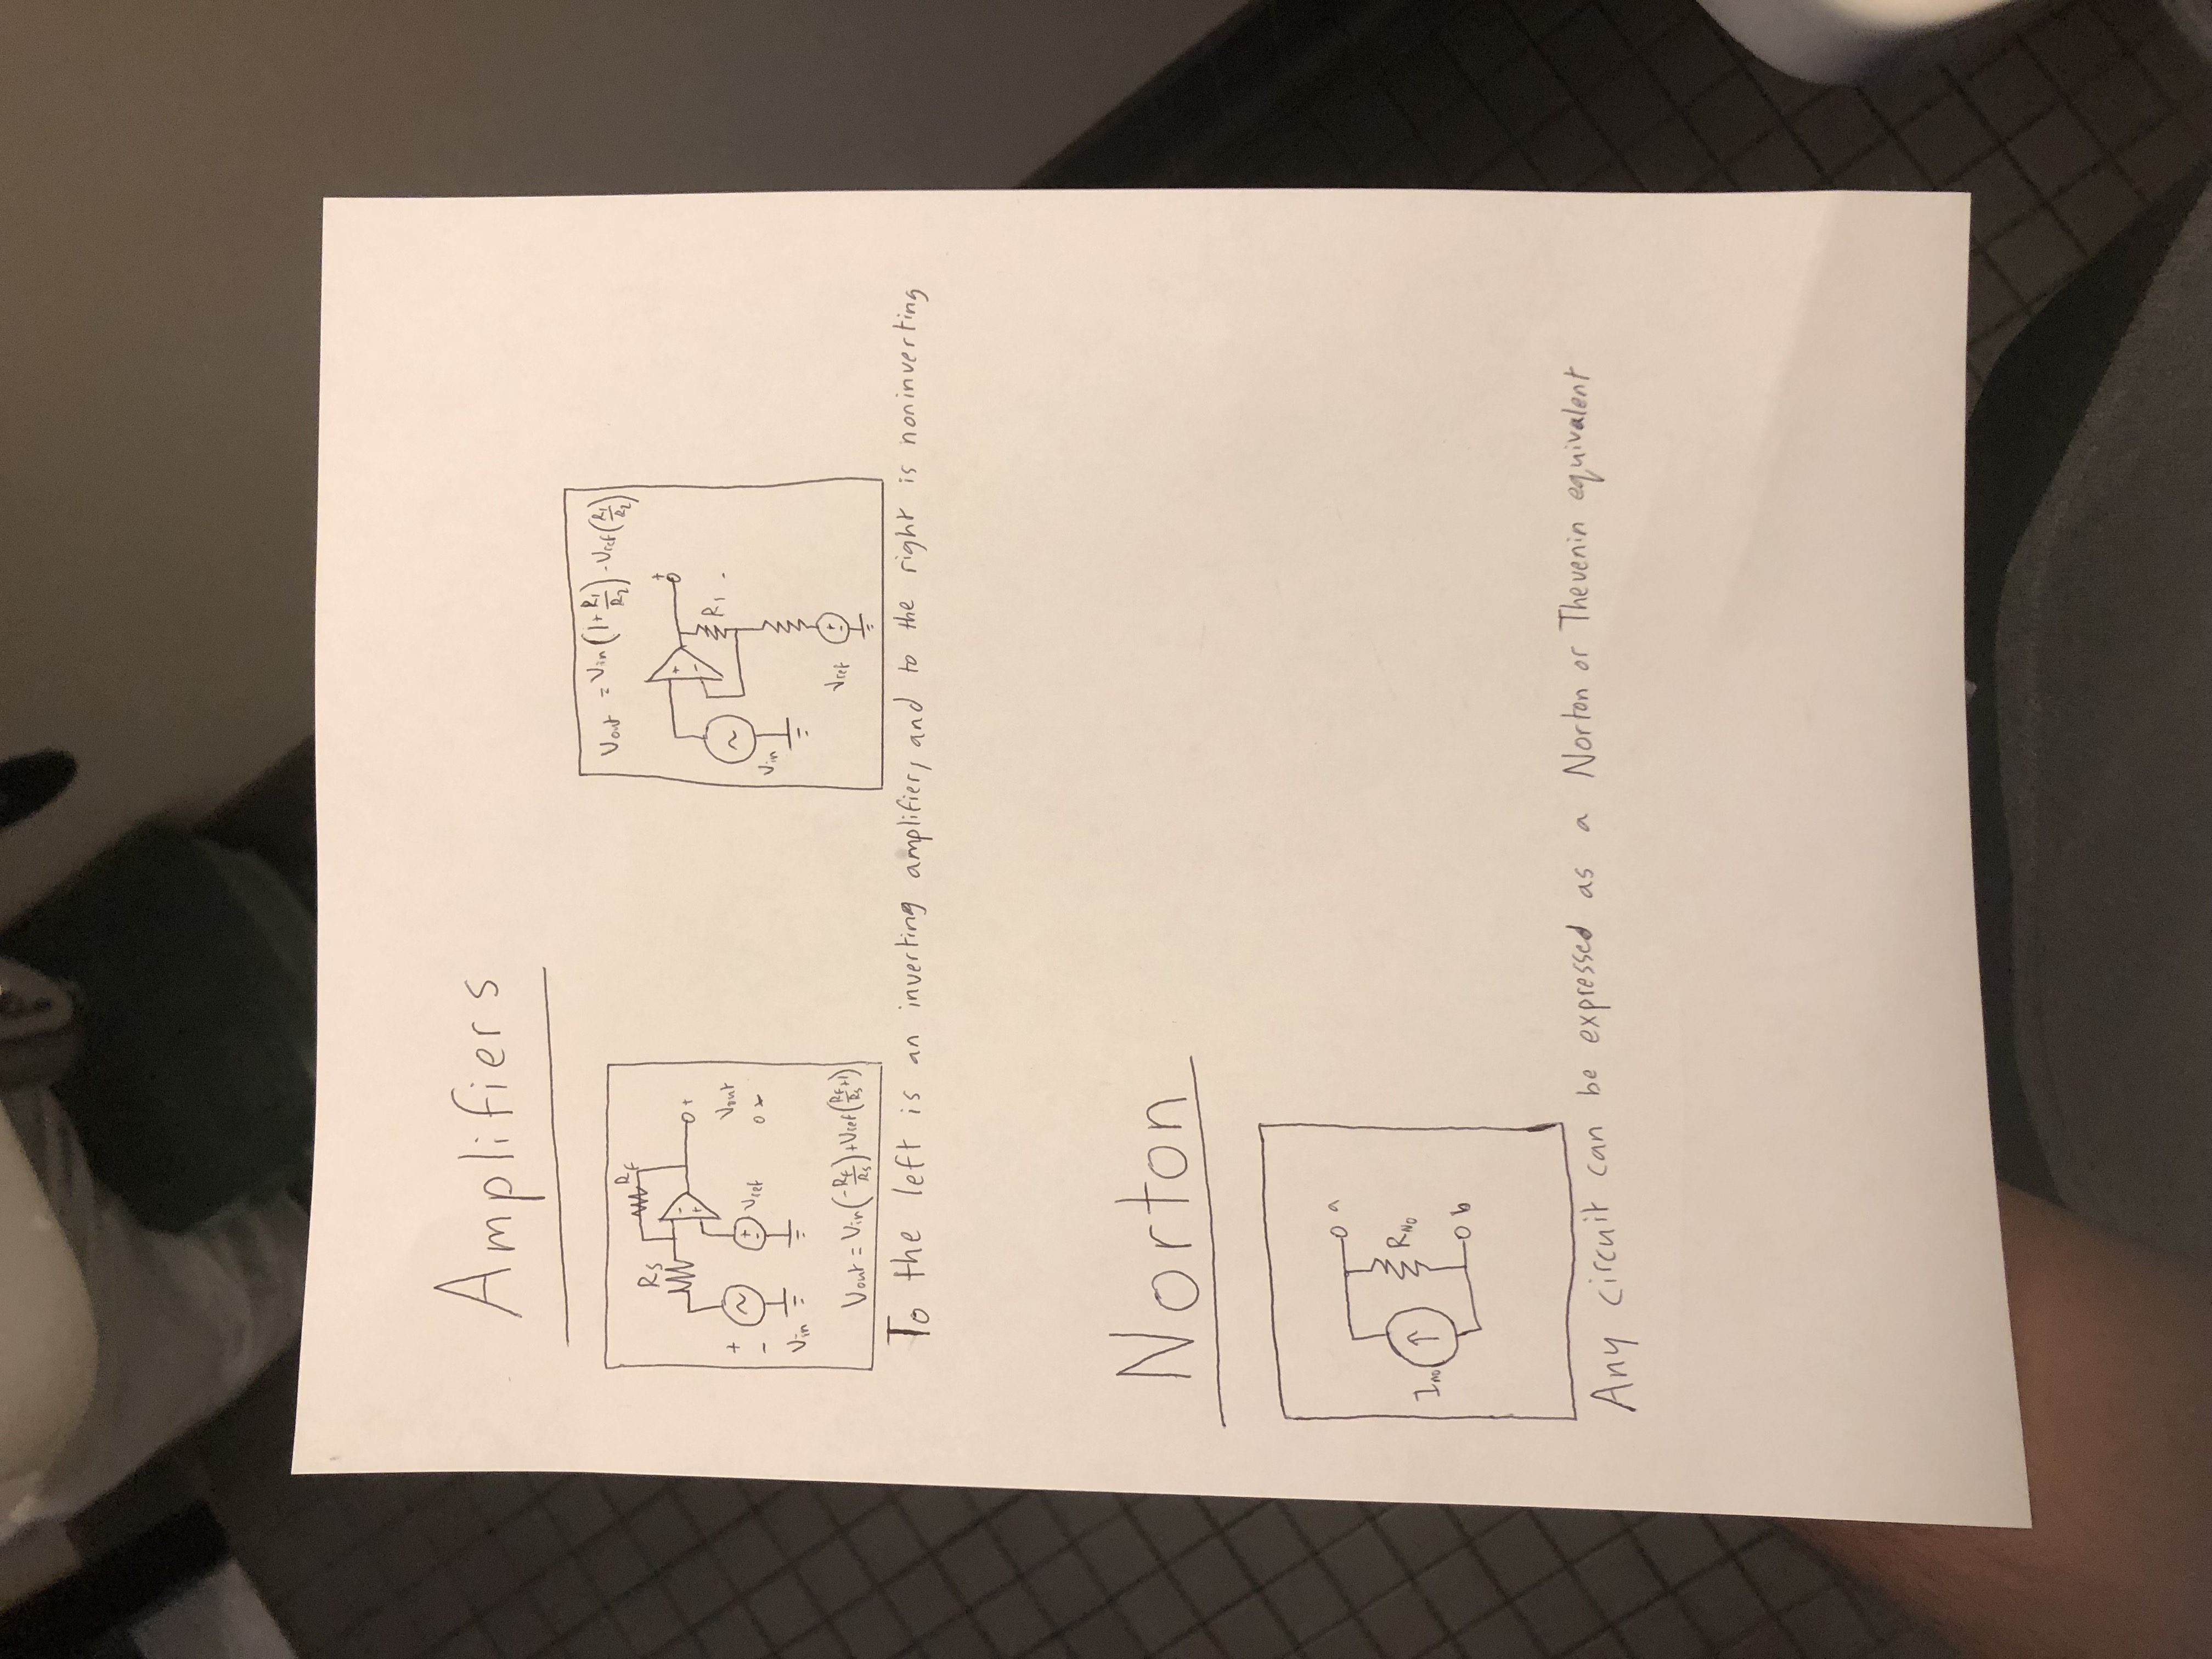 Amplifiers
Rs
Rf
-
+
+
+
-
Vin
+
-
Vref
Vout
Vout = Vin(-Rf/Rs)+Vref(Rf/Rs+1)
Vout = Vin(1+R1/R2)-Vref(R1/R2)
+
-
+
R1
-
Vin
Vref
+
-
To the left is an inverting amplifier, and to the right is noninverting
Norton
a
INO
RNO
b
Any circuit can be expressed as a Norton or Thevenin equivalent